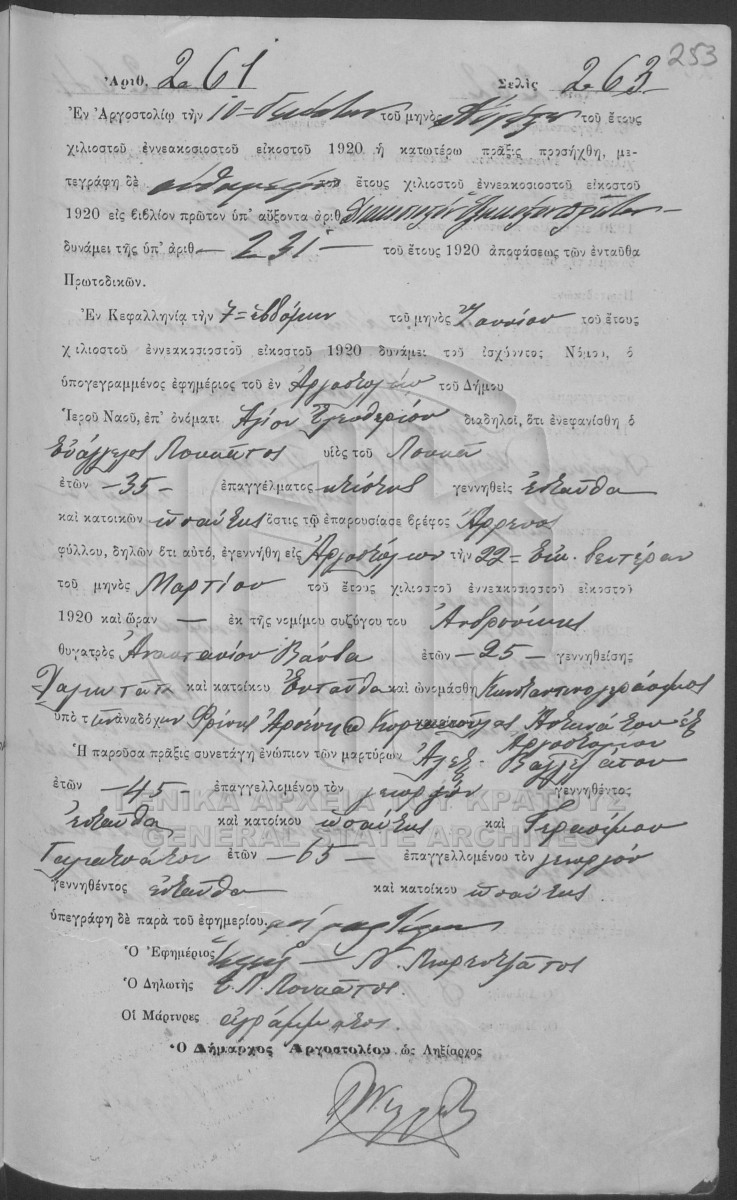 253
Ἀριθ. 261 Σελὶς 263
Ἐν Ἀργοστολίῳ τὴν 10 τοῦ μηνὸς τοῦ ἔτους
χιλιοστοῦ ἐννεακοσιοστοῦ εἰκοστοῦ 1920 ἡ κατωτέρω πρᾶξις προσήχθη, με-
τεγράφη δὲ αὐθημερὸν τοῦ ἔτους χιλιοστοῦ ἐννεακοσιοστοῦ εἰκοστοῦ
1920 εἰς βιβλίον πρῶτον ὑπ' αὔξοντα ἀριθ.
δυνάμει τῆς ὑπ' ἀριθ — 231 — τοῦ ἔτους 1920 ἀποφάσεως τῶν ἐνταῦθα
Πρωτοδικῶν.
Ἐν Κεφαλληνίᾳ τὴν 7= ἑβδόμην τοῦ μηνὸς Ἰουνίου τοῦ ἔτους
χιλιοστοῦ ἐννεακοσιοστοῦ εἰκοστοῦ 1920 δυνάμει τοῦ ἰσχύοντος Νόμου, ὁ
ὑπογεγραμμένος ἐφημέριος τοῦ ἐν Ἀργοστολίῳ τοῦ Δήμου
Ἱεροῦ Ναοῦ, ἐπ' ὀνόματι Ἁγίου Ἐλευθερίου διαδηλοῖ, ὅτι ἐνεφανίσθη ὁ
Εὐάγγελος Λουκᾶτος υἱὸς τοῦ Λουκᾶ
ἐτῶν — 35 — ἐπαγγέλματος κτίστης γεννηθεὶς ἐνταῦθα
καὶ κατοικῶν ὡσαύτως ὅστις τῷ ἐπαρουσίασε βρέφος Ἄρρενος
φύλλου, δηλῶν ὅτι αὐτό, ἐγεννήθη εἰς Ἀργοστόλιον τὴν 22= Εἰκ. δευτέραν
τοῦ μηνὸς Μαρτίου τοῦ ἔτους χιλιοστοῦ ἐννεακοσιοστοῦ εἰκοστοῦ
1920 καὶ ὥραν — ἐκ τῆς νομίμου συζύγου του Ἀνδρονίκης
θυγατρὸς Ἀναστασίου Βάνδα ἐτῶν — 25 — γεννηθείσης
καὶ κατοίκου Ἐνταῦθα καὶ ὠνομάσθη Κωνσταντινογεράσιμος
ὑπὸ τῶν ἀναδόχων ἐξ
Ἀργοστολίου
Ἡ παροῦσα πρᾶξις συνετάγη ἐνώπιον τῶν μαρτύρων Ἀλεξ. Βαγγελάτου
ἐτῶν — 45 — ἐπαγγελλομένου τὸν γεωργὸν γεννηθέντος
ἐνταῦθα καὶ κατοίκου ὡσαύτως καὶ Γερασίμου
ἐτῶν — 65 — ἐπαγγελλομένου τὸν γεωργόν
γεννηθέντος ἐνταῦθα καὶ κατοίκου ὡσαύτως.
ὑπεγράφη δὲ παρὰ τοῦ ἐφημερίου.
Ὁ Ἐφημέριος
Ὁ Δηλωτὴς Ε. Λ. Λουκᾶτος.
Οἱ Μάρτυρες ἀγράμματοι.
Ὁ Δήμαρχος Ἀργοστολίου ὡς Ληξίαρχος
ΓΕΝΙΚΑ ΑΡΧΕΙΑ ΤΟΥ ΚΡΑΤΟΥΣ
GENERAL STATE ARCHIVES